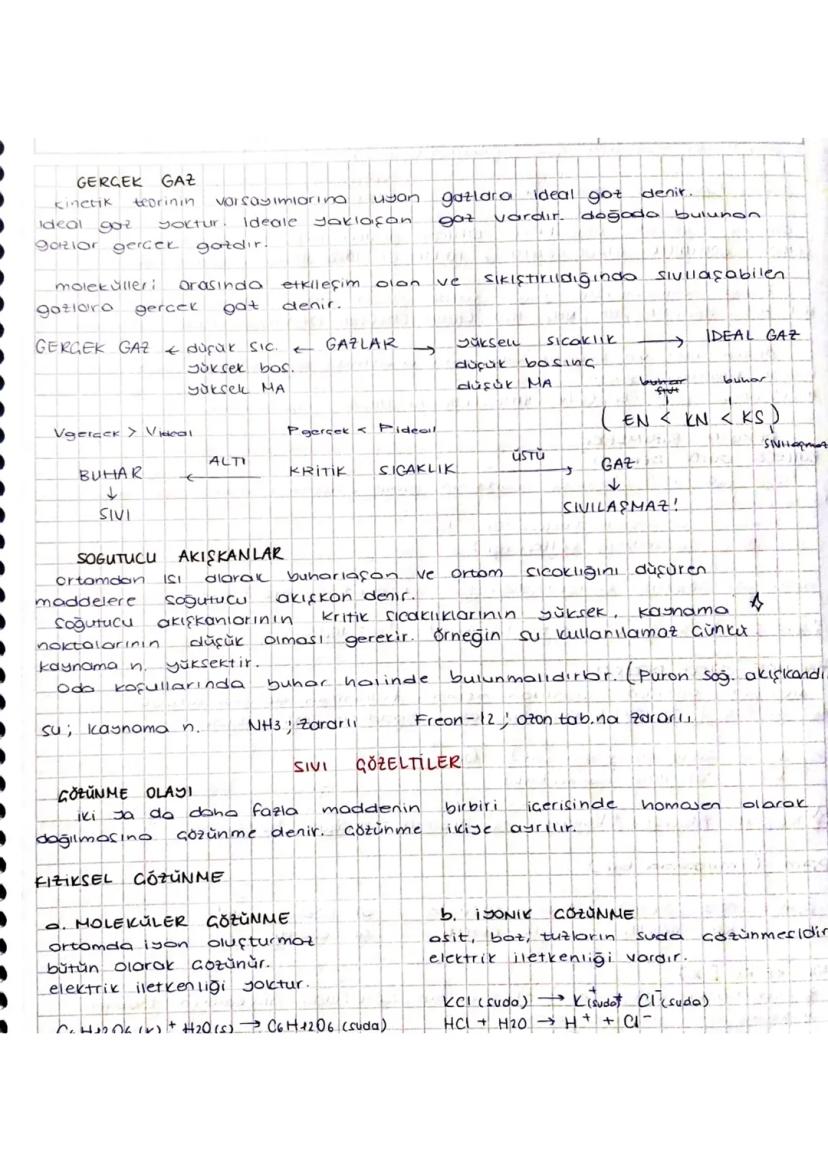 GERÇEK GAZ
Kinetik teorinin varsayımlarına uyan gazlara ideal gaz denir.
İdeal gaz yoktur. İdeale yaklaşan gaz vardır. doğada bulunan
gazlar gerçek gazdır.
molekülleri arasında etkileşim olan ve sıkıştırıldığında sıvılaşabilen
gazlara gerçek gaz denir.
GERÇEK GAZ ← düşük sıc. ← GAZLAR → yüksek sıcaklık → İDEAL GAZ
yüksek bas. düşük basınç
yüksek MA düşük MA buhar buhar
( EN < KN < KS )
Vgerçek > Videal Pgerçek < Pideal
BUHAR ← ALTI KRİTİK SICAKLIK ÜSTÜ → GAZ
↓ ↓
SIVI SIVILAŞMAZ!
SOĞUTUCU AKIŞKANLAR
ortamdan ısı alarak buharlaşan ve ortam sıcaklığını düşüren
maddelere soğutucu akışkan denir.
Soğutucu akışkanlarının kritik sıcaklıklarının yüksek, kaynama ☆
noktalarının düşük olması gerekir. Örneğin su kullanılamaz çünkü
kaynama n. yüksektir.
Oda koşullarında buhar halinde bulunmalıdırlar. (Puron soğ. akışkandı
su; kaynama n. NH3; zararlı Freon-12; ozon tab.na zararlı
SIVI ÇÖZELTİLER
ÇÖZÜNME OLAYI
iki ya da daha fazla maddenin birbiri içerisinde homojen olarak
dağılmasına çözünme denir. Çözünme ikiye ayrılır.
FİZİKSEL ÇÖZÜNME
a. MOLEKÜLER ÇÖZÜNME b. İYONİK ÇÖZÜNME
ortamda iyon oluşturmaz asit, baz, tuzların suda çözünmesidir
bütün olarak çözünür. elektrik iletkenliği vardır.
elektrik iletkenliği yoktur.
KCl (suda) → K⁺(suda) Cl⁻(suda)
C6H12O6 (k) + H2O(s) → C6H12O6 (suda) HCl + H2O → H⁺ + Cl⁻